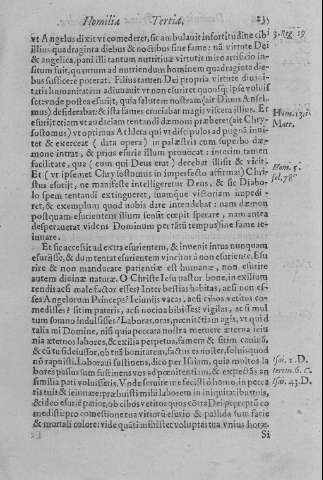 Homilia Tertia. 235
vt Angelus dixit vt comederet, sic ambulauit in fortitudine cibi 3. Reg. 19
illius quadraginta diebus & noctibus sine fame: nã virtute Dei
& angelica, pani illi tantum nutritiua virtutis mire artificio in-
situm fuit, quantum ad nutriendum hominem quadraginta die-
bus sufficere poterat. Filius tamen Dei propria virtute diuini-
tatis humanitatem adiuuauit vt non esuriret quousq; ipse voluit
sed vnde postea esurijt, quia salutem nostram (ait Diuus Ansel-
mus) desiderabat & ista fames cruciabat magis viscera illius. Et
esurijt etiam vt audaciam tentandi dæmoni præberet (ait Chry- Hom. 13. in
sostomus) vt optimus Athleta qui vt discipulos ad pugnã inui- Matt.
tet & exerceat ( data opera) in palæstra cum superbo dæ-
mone intrat, & prius esurie illum prouocat: interim tamen
facilitate, qua ( cum qui Deus erat) decebat illisit & vicit.
Et ( vt ipsemet Chrysostomus in imperfecto affirmat) Chri Hom. 5.
stus esurijt, ne manifeste intelligeretur Deus, & sic Diabo-
lo spem tentandi extingueret, suamque victoriam impedi-
ret, & exemplum quod nobis dare intendebat: nam dæmon
postquam esurientem illum sensit cœpit sperare, nam antea
desperauerat videns Dominum per tãtũ tempus sine fame ie-
iunare.
Et sic accessit ad extra esurientem, & inuenit intus nunquam
esurijsse, & dum tentat esurientem vincitur à non esuriente. Esu
rire & non manducare patientiæ est humanæ, non esurire
autem diuinæ naturæ. O Christe Iesu pastor bone, in exilium
tendis ac si malefactor esses? Inter bestias habitas, ac si non es-
ses Angelorum Princeps? Ieiunijs vacas, ac si cibos vetitos co-
medisses? sitim pateris, ac si nociua bibisses? vigilas, ac si mul
tum somno indulsisses? Laboras, oras, pœnitẽtiam agis, vt quid
talia mi Domine, nisi quia peccara nostra meruere æterna ieiu
nia æternos labores, & exilia perpetua, famem & sitim caninã,
& cũ tu fideiussor, ob tuã bonitatem, factus ex noster, soluis quod
nõ rapuisti. Laboraui sustinens, dico per Isaiam, quia multos la Isai. 1. D.
bores passus sum sustinens vos ad pœnitentiam, & expectãs an Ierem. 6. C.
similia pati voluissetis. Vnde seruire me fecisti ò homo, in pecca Isai. 43. D.
tis tuis & ieiunare: præbuisti mihi laborem in iniquitatibus tuis,
& ideo esurië patior, ob cibos vetitos quos cõtra Dei præceptũ co
medisti: pro comestione tua vitiorũ esurio & pallida sum facie
& murtali colore: vide quã mihi stet voluptas tua vnius horæ.
Si